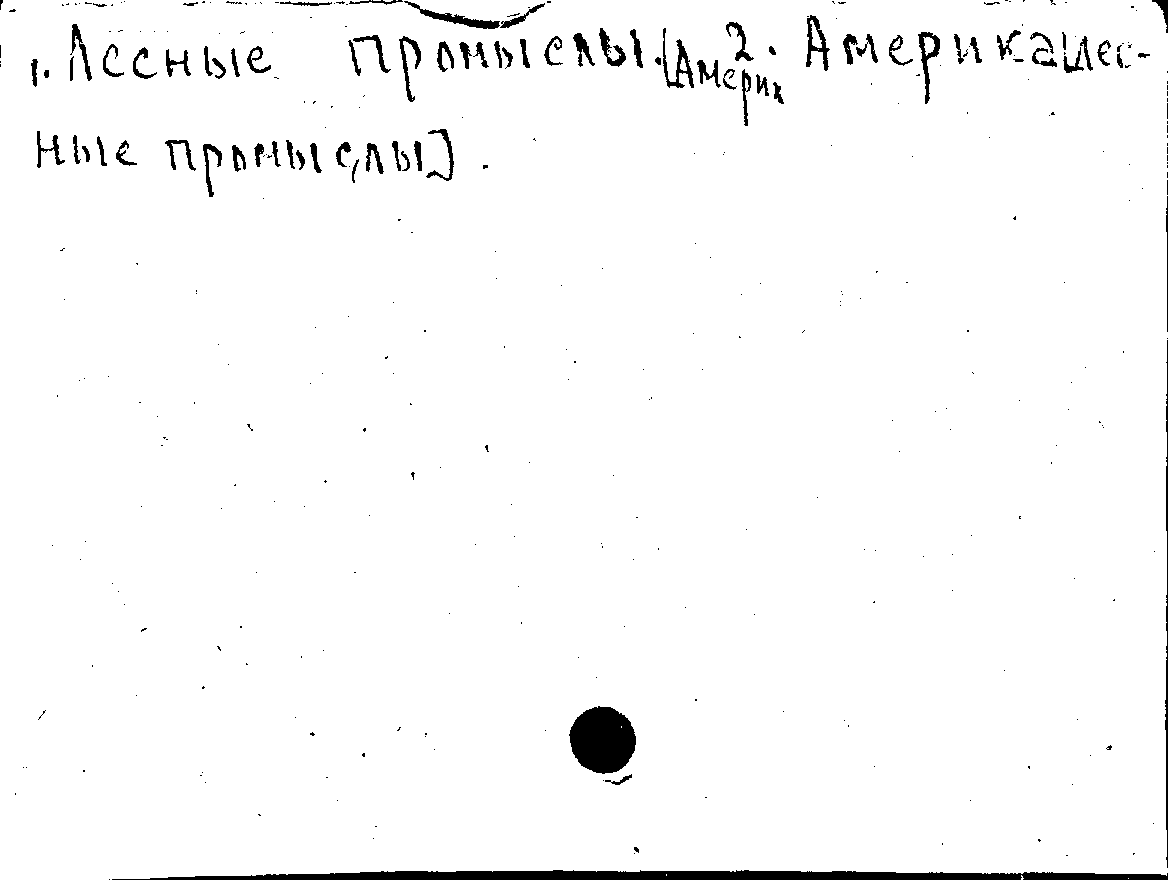 1. Лесные промыслы. [Америк 2. Америка [лес-
ные промыслы].